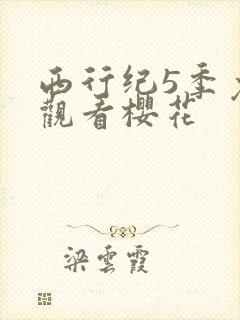 西行纪5季
觀看櫻花
梁雲霞